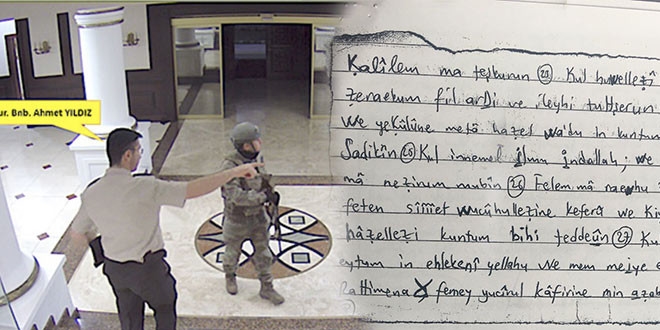 ur. Bnb. Ahmet YILDIZ
Kalîlem ma teşkurun 23 Kul huvellezî
zeraekum fil ardi ve ileyhi tuhşerun
We yekûlûne metâ hazel wa'du in kuntum
Sadikîn 25 Kul innemel ilmu indallah; we
mâ nezinum mubîn 26 Felem mâ
feten sîîiet wucûhullezine keferû we Ki
hâzellezi kuntum bihi teddeûn 27 Ku
eytum in ehlekenî yellahu we mem meiye e
femey yucîrul kâfirine min azab